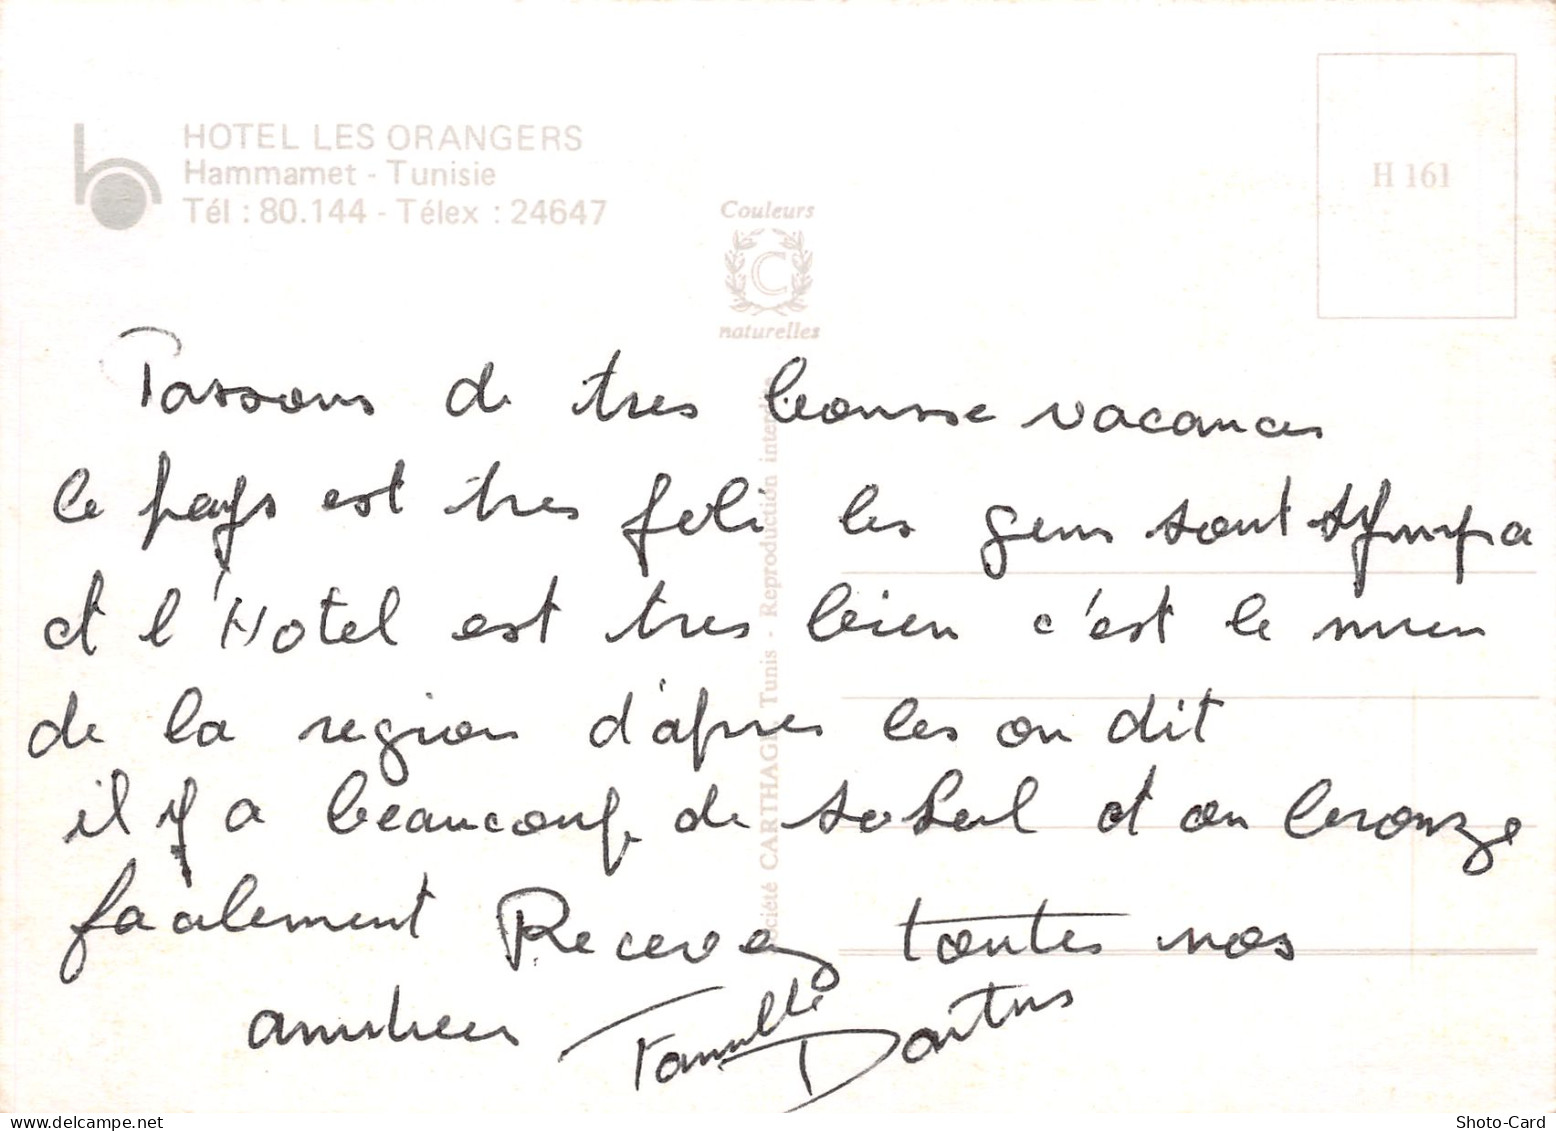 HOTEL LES ORANGERS
Hammamet - Tunisie
Tél : 80.144 - Télex : 24647
Couleurs
C
naturelles
H 161
Société CARTHAGE Tunis - Reproduction interdite
Passons de tres bonnse vacances
le pays est tres joli les gens sont sympa
et l'Hotel est tres bien c'est le mien
de la region d'apres les on dit
il y a beaucoup de soleil et on bronze
facilement Recevez toutes nos
amitiees Famille
Shoto-Card